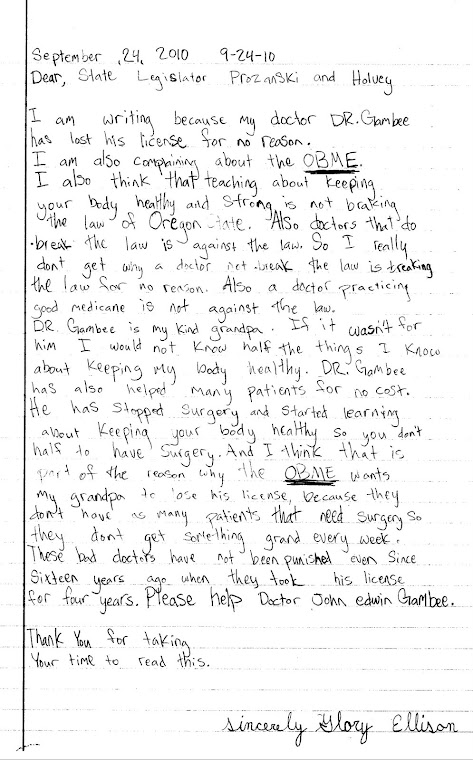 September ,24, 2010 9-24-10
Dear, State Legislator Prozanski and Holvey
I am writing because my doctor DR. Gambee
has lost his license for no reason.
I am also complaining about the OBME.
I also think that teaching about keeping
your body healthy and strong is not braking
the law of Oregon State. Also doctors that do
break the law is against the law. So I really
don't get why a doctor not break the law is breaking
the law for no reason. Also a doctor practicing
good medicane is not against the law.
DR. Gambee is my kind grandpa. If it wasn't for
him I would not know half the things I know
about keeping my body healthy. DR. Gambee
has also helped many patients for no cost.
He has stopped surgery and started learning
about keeping your body healthy so you don't
half to have surgery. And I think that is
part of the reason why the OBME wants
my grandpa to lose his license, because they
don't have as many patients that need surgery so
they dont get something grand every week.
These bad doctors have not been punished even since
sixteen years ago when they took his license
for four years. Please help Doctor John edwin Gambee.
Thank You for taking
Your time to read this.
sincerely Glory Ellison